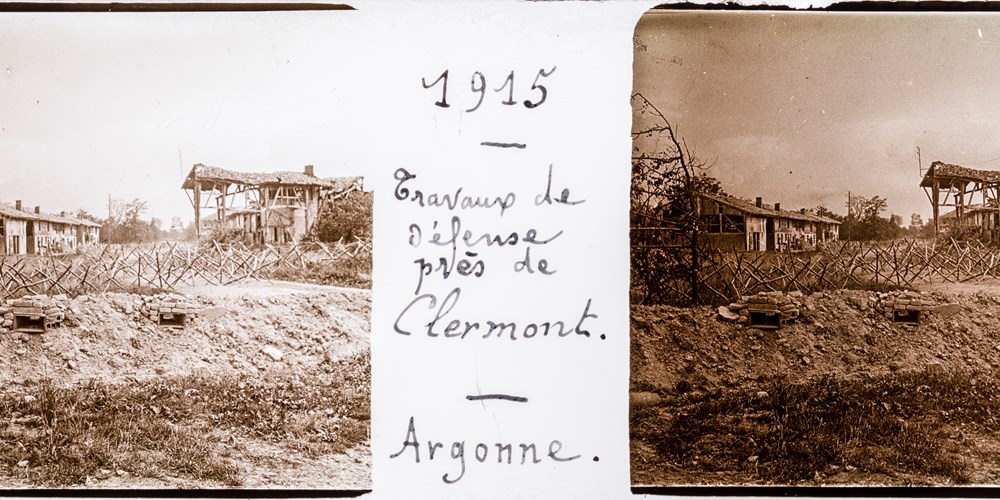 1915
Travaux de
Défense
près de
Clermont.
Argonne.